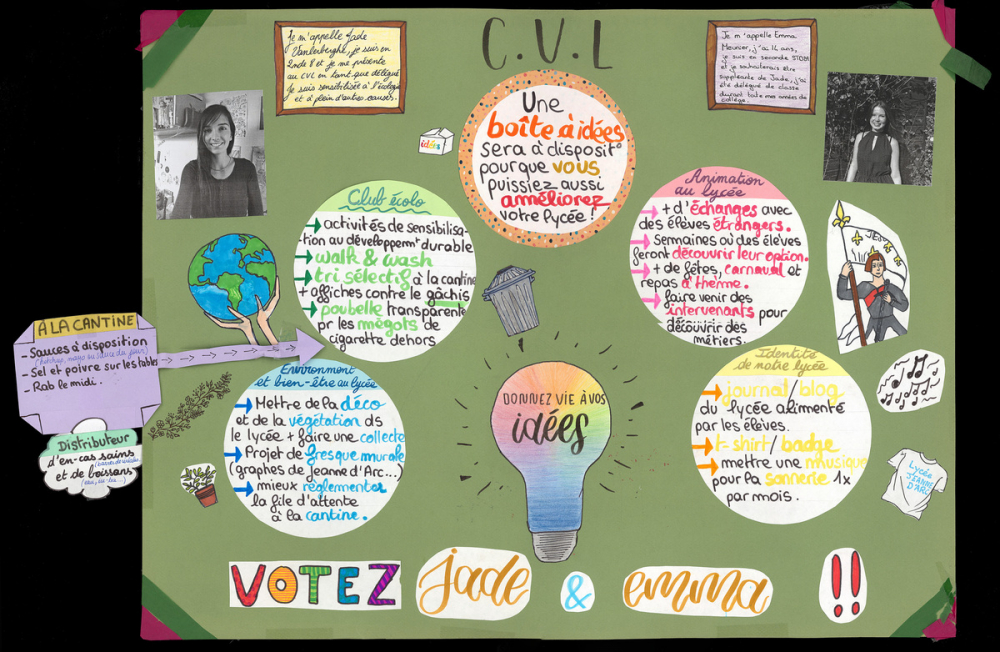 C.V.L
Je m'appelle Jade
Vanlerberghe, je suis en
2nde 8 et je me présente
au CVL en tant que délégué
je suis sensibilisée à l'écologie
et à plein d'autres causes.
Je m'appelle Emma
Meunier, j'ai 14 ans,
je suis en seconde
et je souhaiterais être
suppléante de Jade, j'ai
été délégué de classe
durant toute mes années de
collège.
Une
boîte à idées
sera à disposit°
pour que vous
puissiez aussi
améliorez
votre lycée !
idées
Club écolo
→ activités de sensibilisa-
-tion au développemt durable
→ walk & wash
→ tri sélectif à la cantine
+ affiches contre le gâchis
→ poubelle transparente
pr les mégots de
cigarette dehors.
Animation
au lycée
→ + d'échanges avec
des élèves étrangers.
→ Semaines où des élèves
feront découvrir leur option.
→ + de fêtes, carnaval et
repas à thème.
→ faire venir des
intervenants pour
découvrir des
métiers.
A LA CANTINE
- Sauces à disposition
(ketchup, mayo ou sauce du jour)
- Sel et poivre sur les tables
- Rab le midi.
Distributeur
d'en-cas sains
et de boissons
Environment
et bien-être au lycée
→ Mettre de la déco
et de la végétation ds
le lycée + faire une collecte
→ Projet de fresque murale
(graphes de Jeanne d'Arc...)
→ mieux réglementer
la file d'attente
à la cantine.
DONNEZ VIE À VOS
idées
Identité
de notre lycée
→ journal/blog
du lycée alimenté
par les élèves.
→ t-shirt/badge
→ mettre une musique
pour la sonnerie 1x
par mois.
Lycée
JEANNE
D'ARC
VOTEZ jade & emma !!